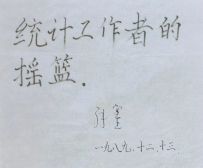 统计工作者的
摇篮.
一九八九.十二.十三